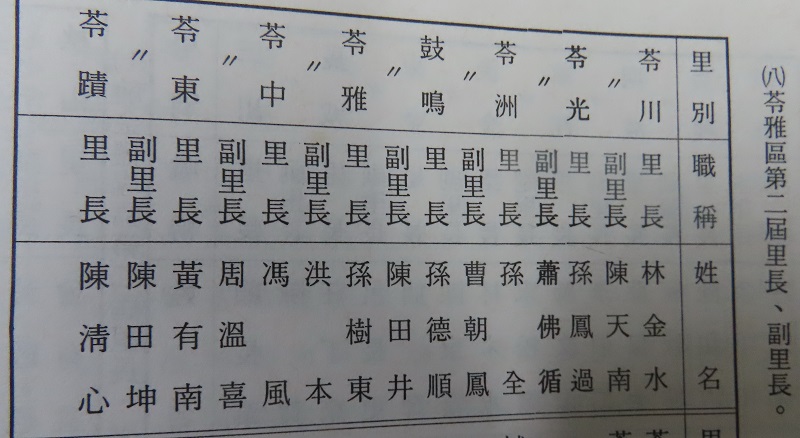 ㈧苓雅區第二屆里長、副里長。
里別 職稱 姓名
苓川 里長 林金水
〃 副里長 陳天南
苓光 里長 孫鳳過
〃 副里長 蕭佛循
苓洲 里長 孫全
〃 副里長 曹朝鳳
鼓鳴 里長 孫德順
〃 副里長 陳田井
苓雅 里長 孫樹東
〃 副里長 洪本
苓中 里長 馮風
〃 副里長 周溫喜
苓東 里長 黃有南
〃 副里長 陳田坤
苓蹟 里長 陳清心